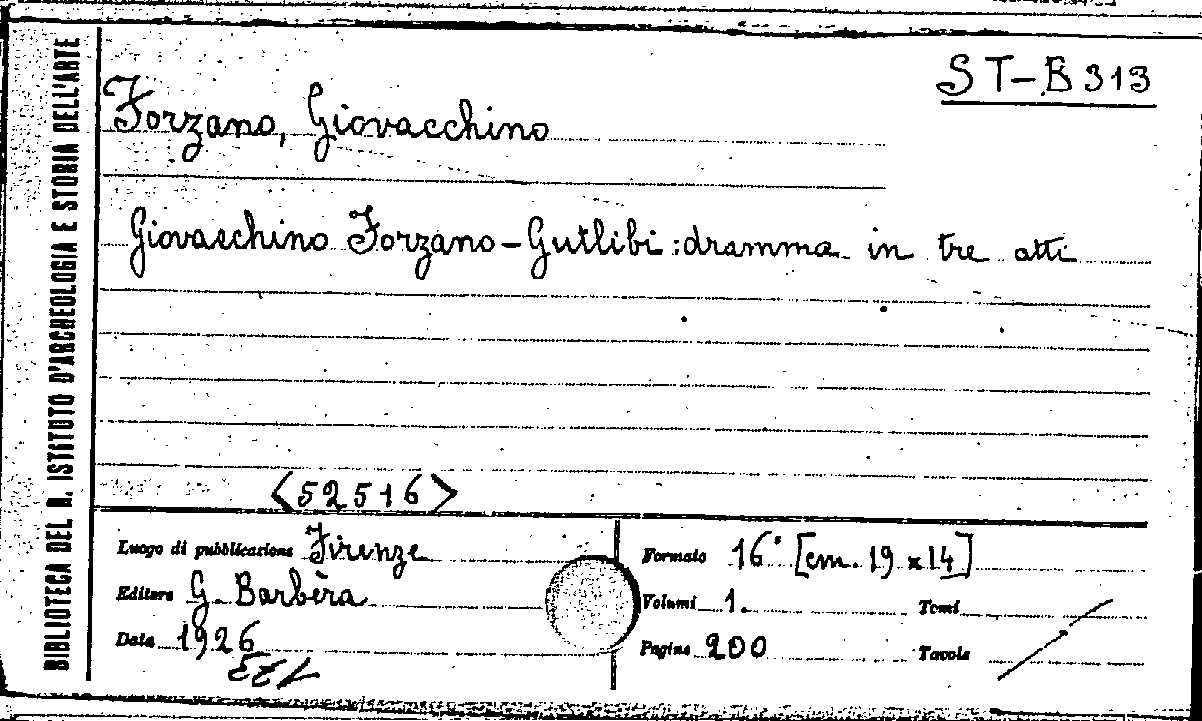 BIBLIOTECA DEL R. ISTITUTO D'ARCHEOLOGIA E STORIA DELL'ARTE
ST-B 313
Forzano, Giovacchino
Giovaschino Forzano - Gutlibi: dramma in tre atti
<52516>
Luogo di pubblicazione Firenze
Editore G. Barbèra
Data 1926
Formato 16° [cm. 19 x 14]
Volumi 1. Tomi
Pagine 200 Tavole